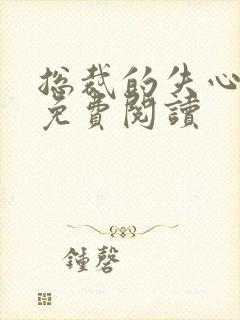 总裁的失心
免費閱讀
鍾磬